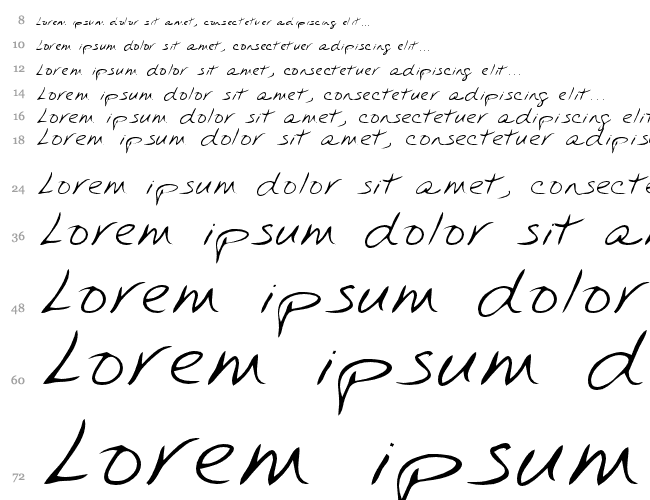 8 Lorem ipsum dolor sit amet, consectetuer adipiscing elit...
10 Lorem ipsum dolor sit amet, consectetuer adipiscing elit...
12 Lorem ipsum dolor sit amet, consectetuer adipiscing elit...
14 Lorem ipsum dolor sit amet, consectetuer adipiscing elit...
16 Lorem ipsum dolor sit amet, consectetuer adipiscing elit
18 Lorem ipsum dolor sit amet, consectetuer adipis
24 Lorem ipsum dolor sit amet, consecte
36 Lorem ipsum dolor sit a
48 Lorem ipsum dolor
60 Lorem ipsum d
72 Lorem ipsum